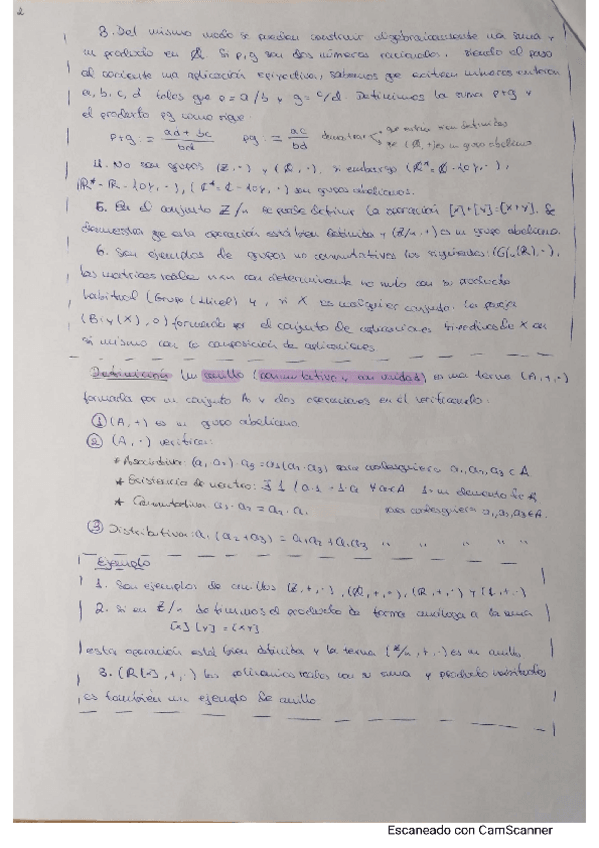 2
3. Del mismo modo se pueden construir algebraicamente una suma y
un producto en Q. Si p, q son dos números racionales, siendo el paso
al cociente una aplicación epiyectiva, sabemos que existen números enteros
a, b, c, d tales que p = a/b y q = c/d. Definimos la suma p+q y
el producto pq como sigue:
p+q := ad + bc / bd   pq := ac / bd   demostrar que están bien definidas
(Q,+) es un grupo abeliano
4. No son grupos (Z, ·) y (Q, ·), sin embargo (Q* = Q - {0}, ·),
(R* = R - {0}, ·), (C* = C - {0}, ·) son grupos abelianos.
5. En el conjunto Z/n se puede definir la operación [x]+[y]:=[x+y]. Se
demuestra que esta operación está bien definida y (Z/n, +) es un grupo abeliano.
6. Son ejemplos de grupos no conmutativos los siguientes: (Gln(R), ·),
las matrices reales nxn con determinante no nulo con su producto
habitual (Grupo lineal) y, si X es cualquier conjunto, la pareja
(Biy(X), o) formada por el conjunto de aplicaciones biyectivas de X en
si mismo con la composición de aplicaciones.
Definición Un anillo (conmutativo y con unidad) es una terna (A, +, ·)
formada por un conjunto A y dos operaciones en el verificando:
① (A, +) es un grupo abeliano.
② (A, ·) verifica:
* Asociativa: (a1 a2) · a3 = a1 (a2 · a3) para cualesquiera a1, a2, a3 ∈ A
* Existencia de neutro: ∃ 1 / a·1 = 1·a ∀a∈A 1 es un elemento de A
* Conmutativa a1 · a2 = a2 · a1 para cualesquiera a1, a2, a3 ∈ A.
③ Distributiva: a1 (a2 + a3) = a1 a2 + a1 a3 " " " "
Ejemplo
1. Son ejemplos de anillos (Z, +, ·), (Q, +, ·), (R, +, ·) y (C, +, ·)
2. Si en Z/n definimos el producto de forma análoga a la suma
[x] [y] = [xy]
esta operación está bien definida y la terna (Z/n, +, ·) es un anillo
3. (R[x], +, ·) los polinomios reales con su suma y producto habituales
es también un ejemplo de anillo
Escaneado con CamScanner